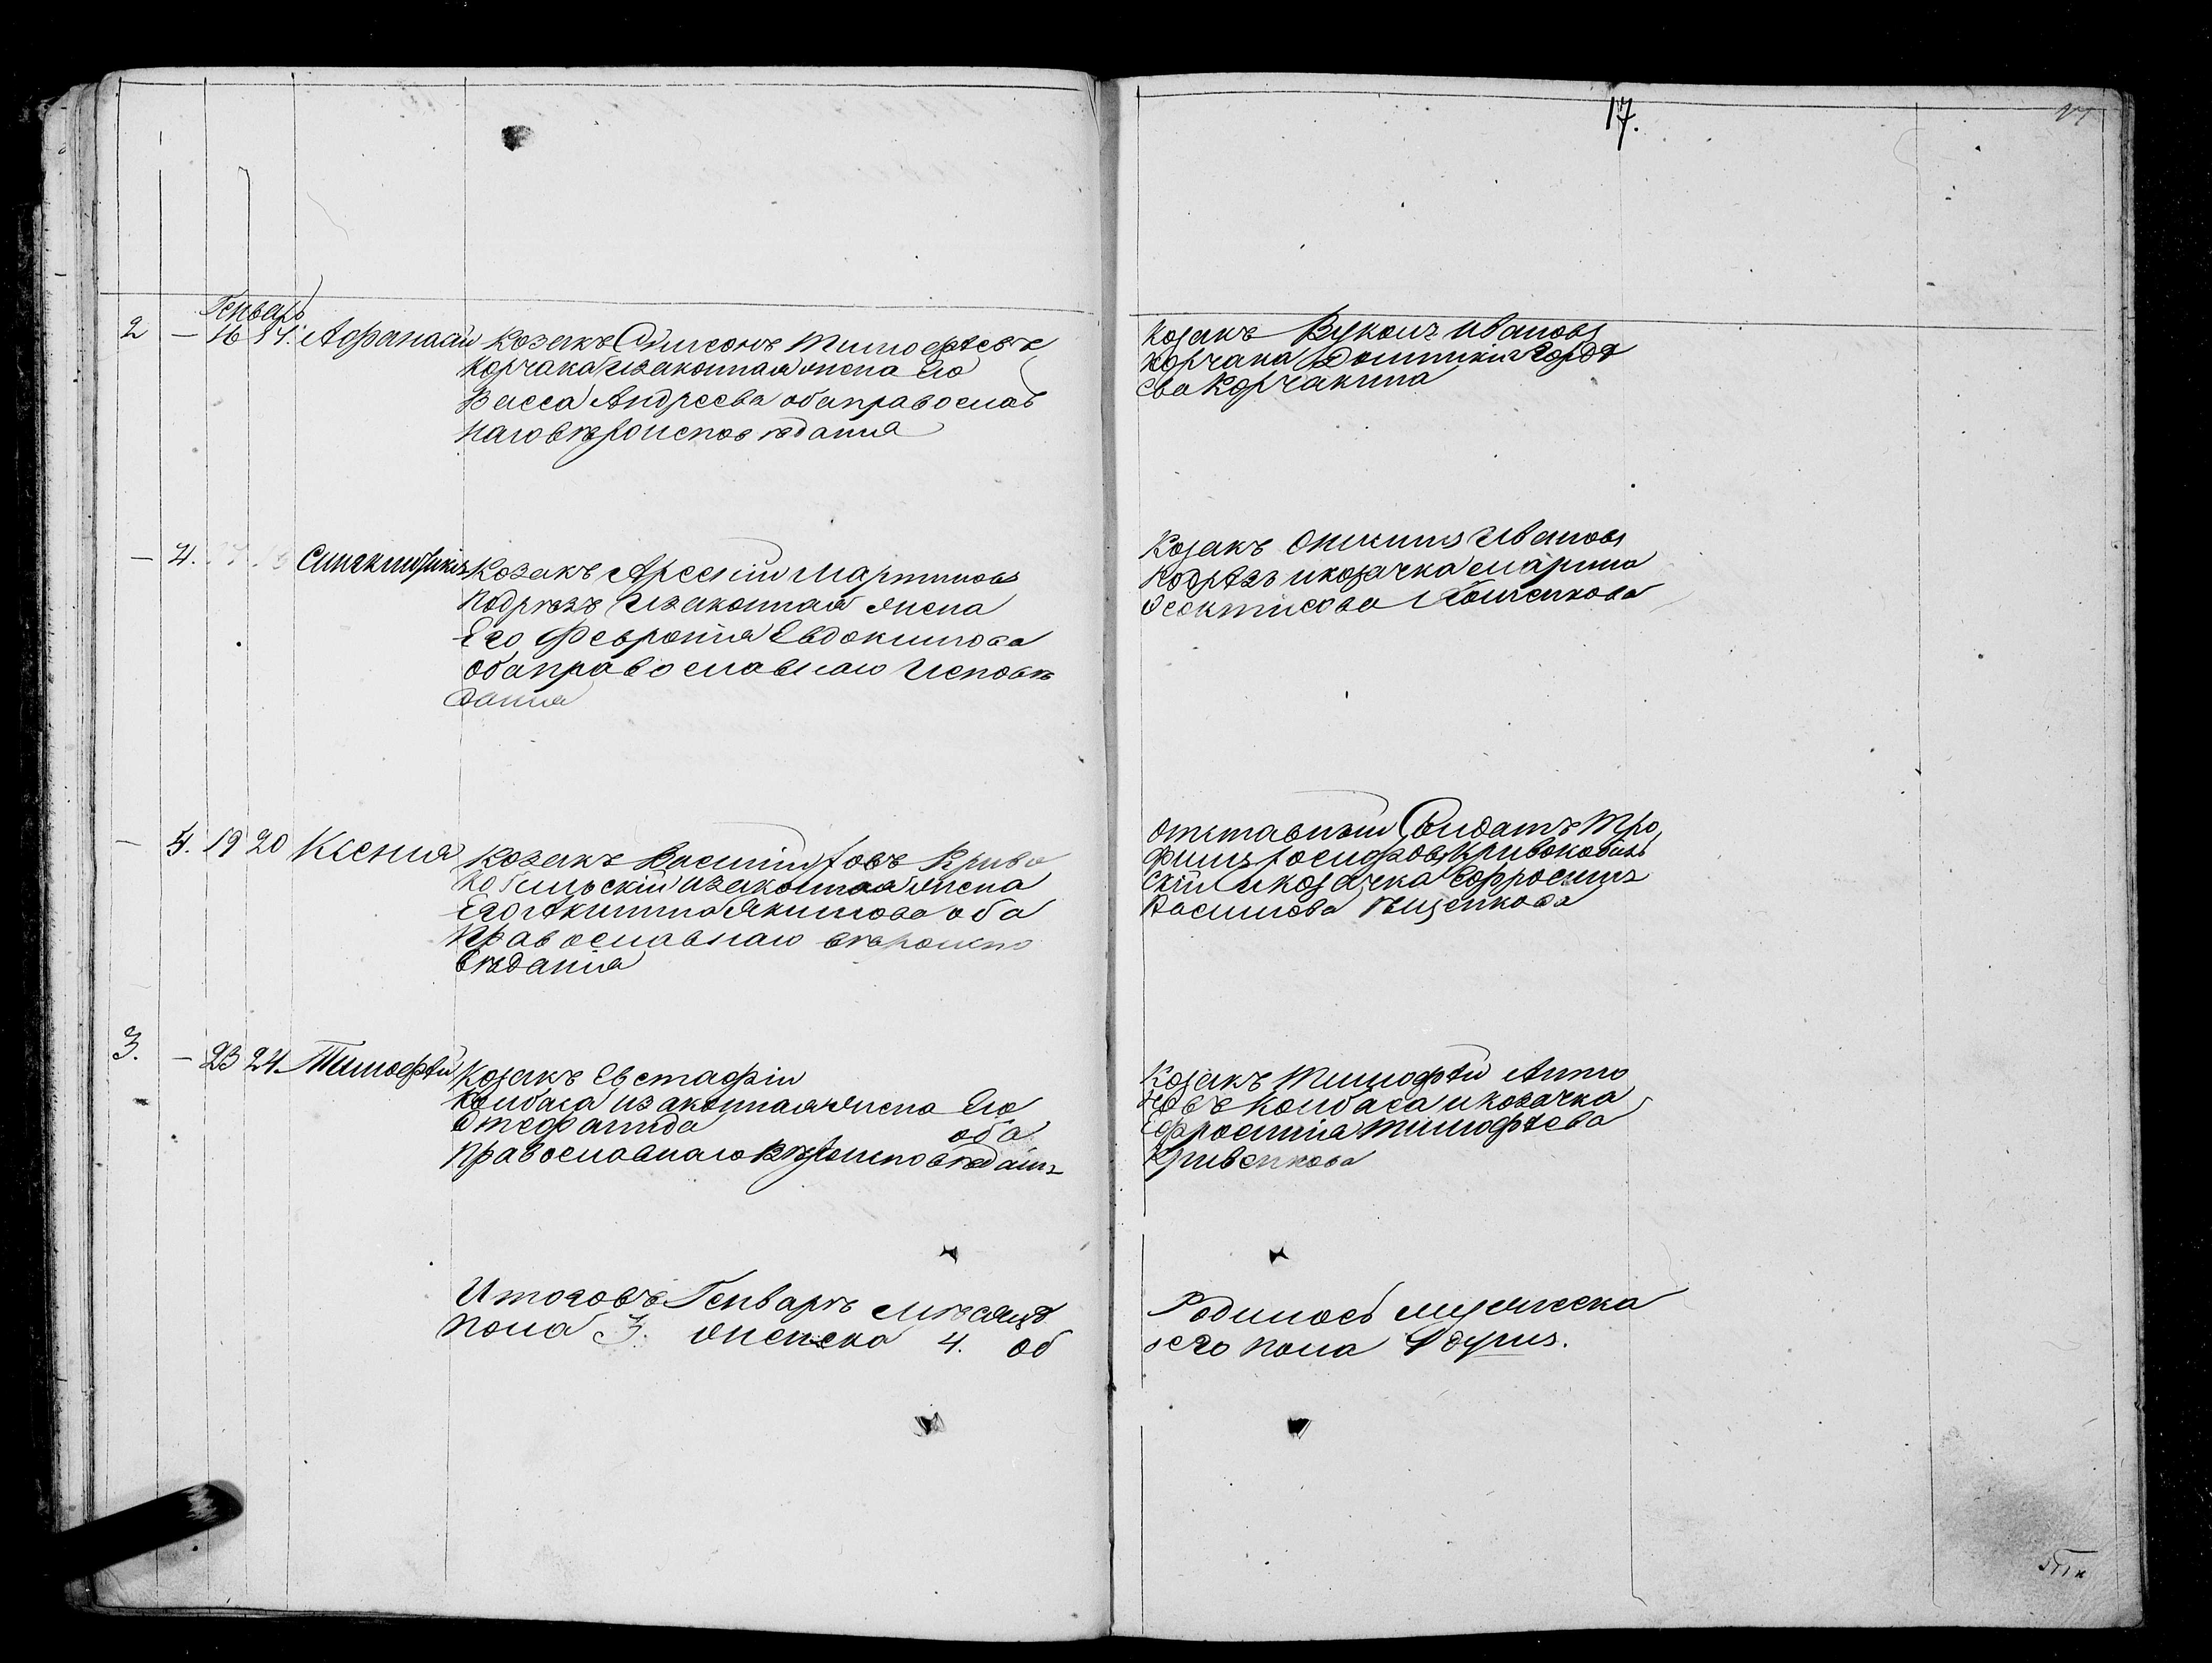 17.
Генварь
2 — 16 Афанасий Козакъ Симеонъ Тимофѣевъ
Корчака и законная жена Его
Васса Андреева оба православ
наго вѣроисповѣдания
Козакъ Вуколъ Ивановъ
Корчака Домникия Гордѣ
ева Корчакина
— Синклитикия Козакъ Арсений Мартиновъ
Подрѣзъ и законная жена
Его Феврония Евдокимова
оба православнаго исповѣ
дания
Козакъ Онисимъ Ивановъ
Подрѣзъ и козачка Марина
Феоктисова
— 19 20 Ксения Козакъ Василий Іовъ Криво
кобильский и законная жена
Его Акилина Якимова оба
Православнаго вѣроиспо
вѣдания
отставный Солдатъ Тро
фимъ Іосифовъ Кривокобиль
ский и козачка Ефросиния
Василиева
3. — 23 24 Тимофѣй Козакъ Евстафий
Колбаса и законная жена Его
Стефанида оба
Православнаго вѣроисповѣдания
Козакъ Тимофѣй Анто
новъ Колбаса и козачка
Ефросиния Тимофѣева
Кривенкова
Итого въ Генварѣ мѣсяцѣ
Родилось мужеска
пола 3. женска 4. об
оего пола 7 душъ.